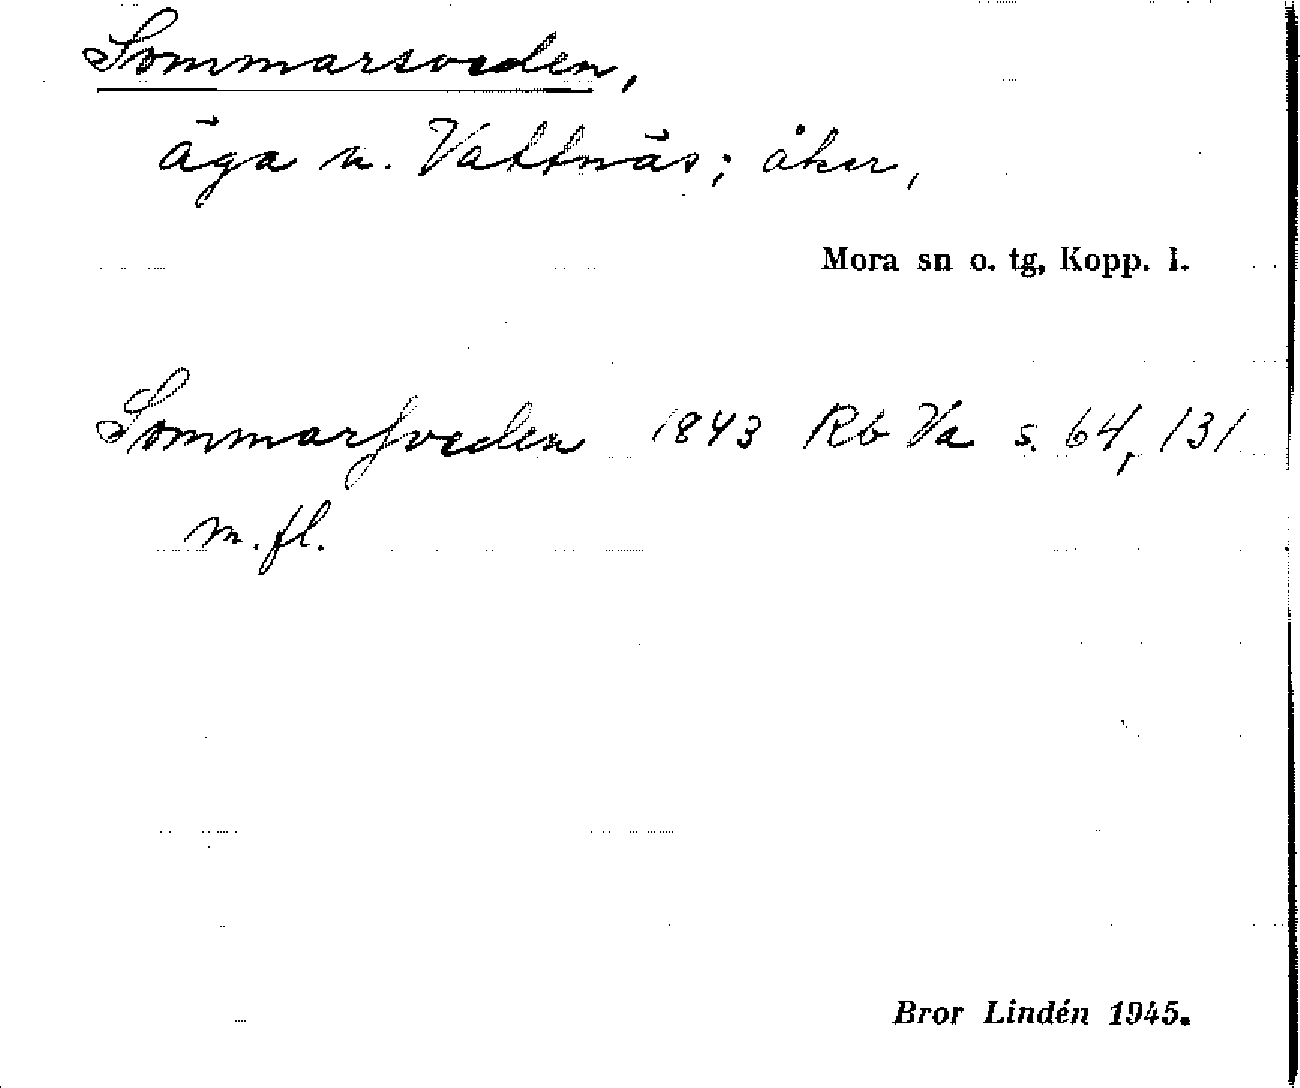 Sommarsveden,
äga u. Vattnäs; åker,
Mora sn o. tg, Kopp. l.
Sommarſveden 1843 Rb Va s. 64, 131
m. fl.
Bror Lindén 1945.